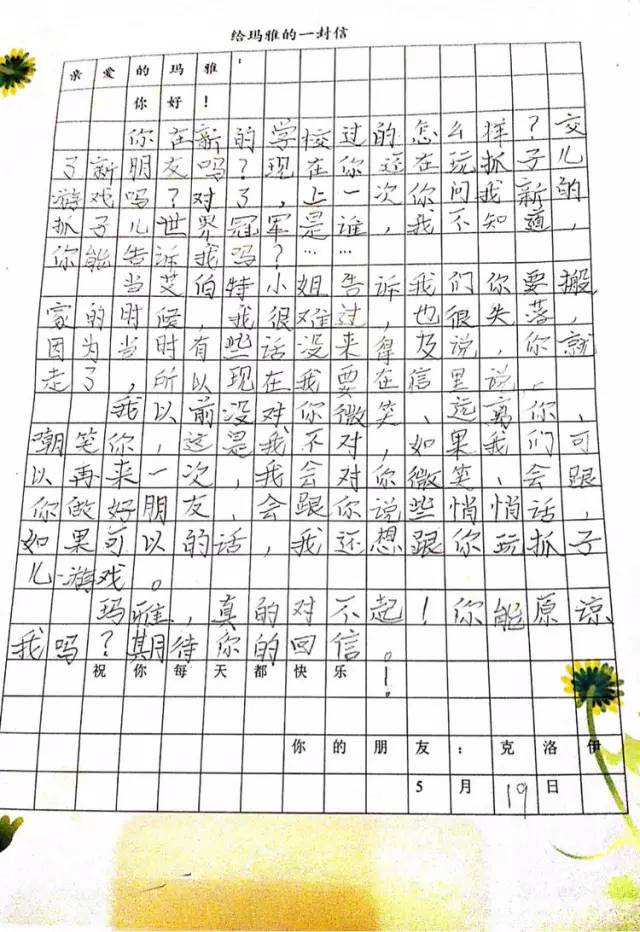 给玛雅的一封信
亲爱的玛雅：
你好！
你在新的学校过的怎么样？交
了新朋友吗？现在你还在玩抓子儿
游戏吗？对了，上一次你问我新的
抓子儿世界冠军是谁，我不知道，
你能告诉我吗？……
当艾伯特小姐告诉我们你要搬
家的时候，我很难过，也很失落，
因为当时有些话没来得及说，你就
走了，所以现在我要在信里说。
我以前没对你微笑、远离你、
嘲笑你，这是我不对，如果我们可
以再来一次，我会对你微笑、会跟
你做好朋友、会跟你说些悄悄话，
如果可以的话，我还想跟你玩抓子
儿游戏。
玛雅，真的对不起！你能原谅
我吗？期待你的回信。
祝你每天都快乐！
你的朋友：克洛伊
5月19日